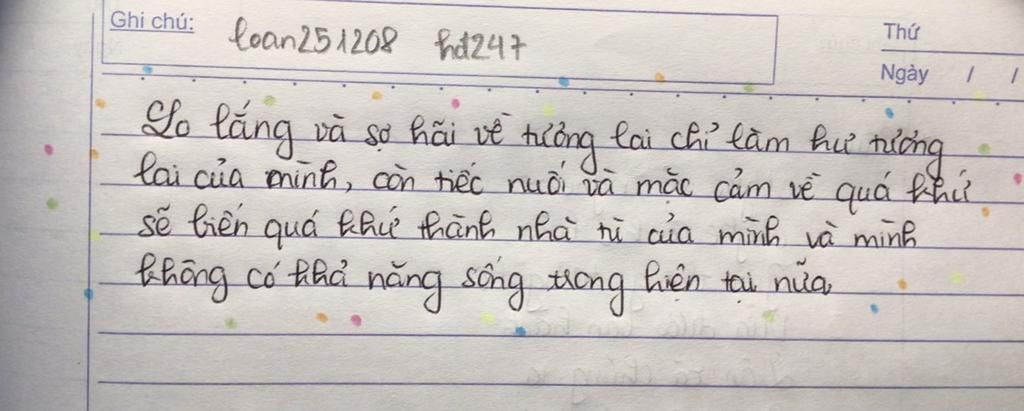 Ghi chú: loan251208 hd247
Thứ
Ngày / /
Lo lắng và sợ hãi về tương lai chỉ làm hư tương
lai của mình, còn tiếc nuối và mặc cảm về quá khứ
sẽ biến quá khứ thành nhà tù của mình và mình
không có khả năng sống trong hiện tại nữa